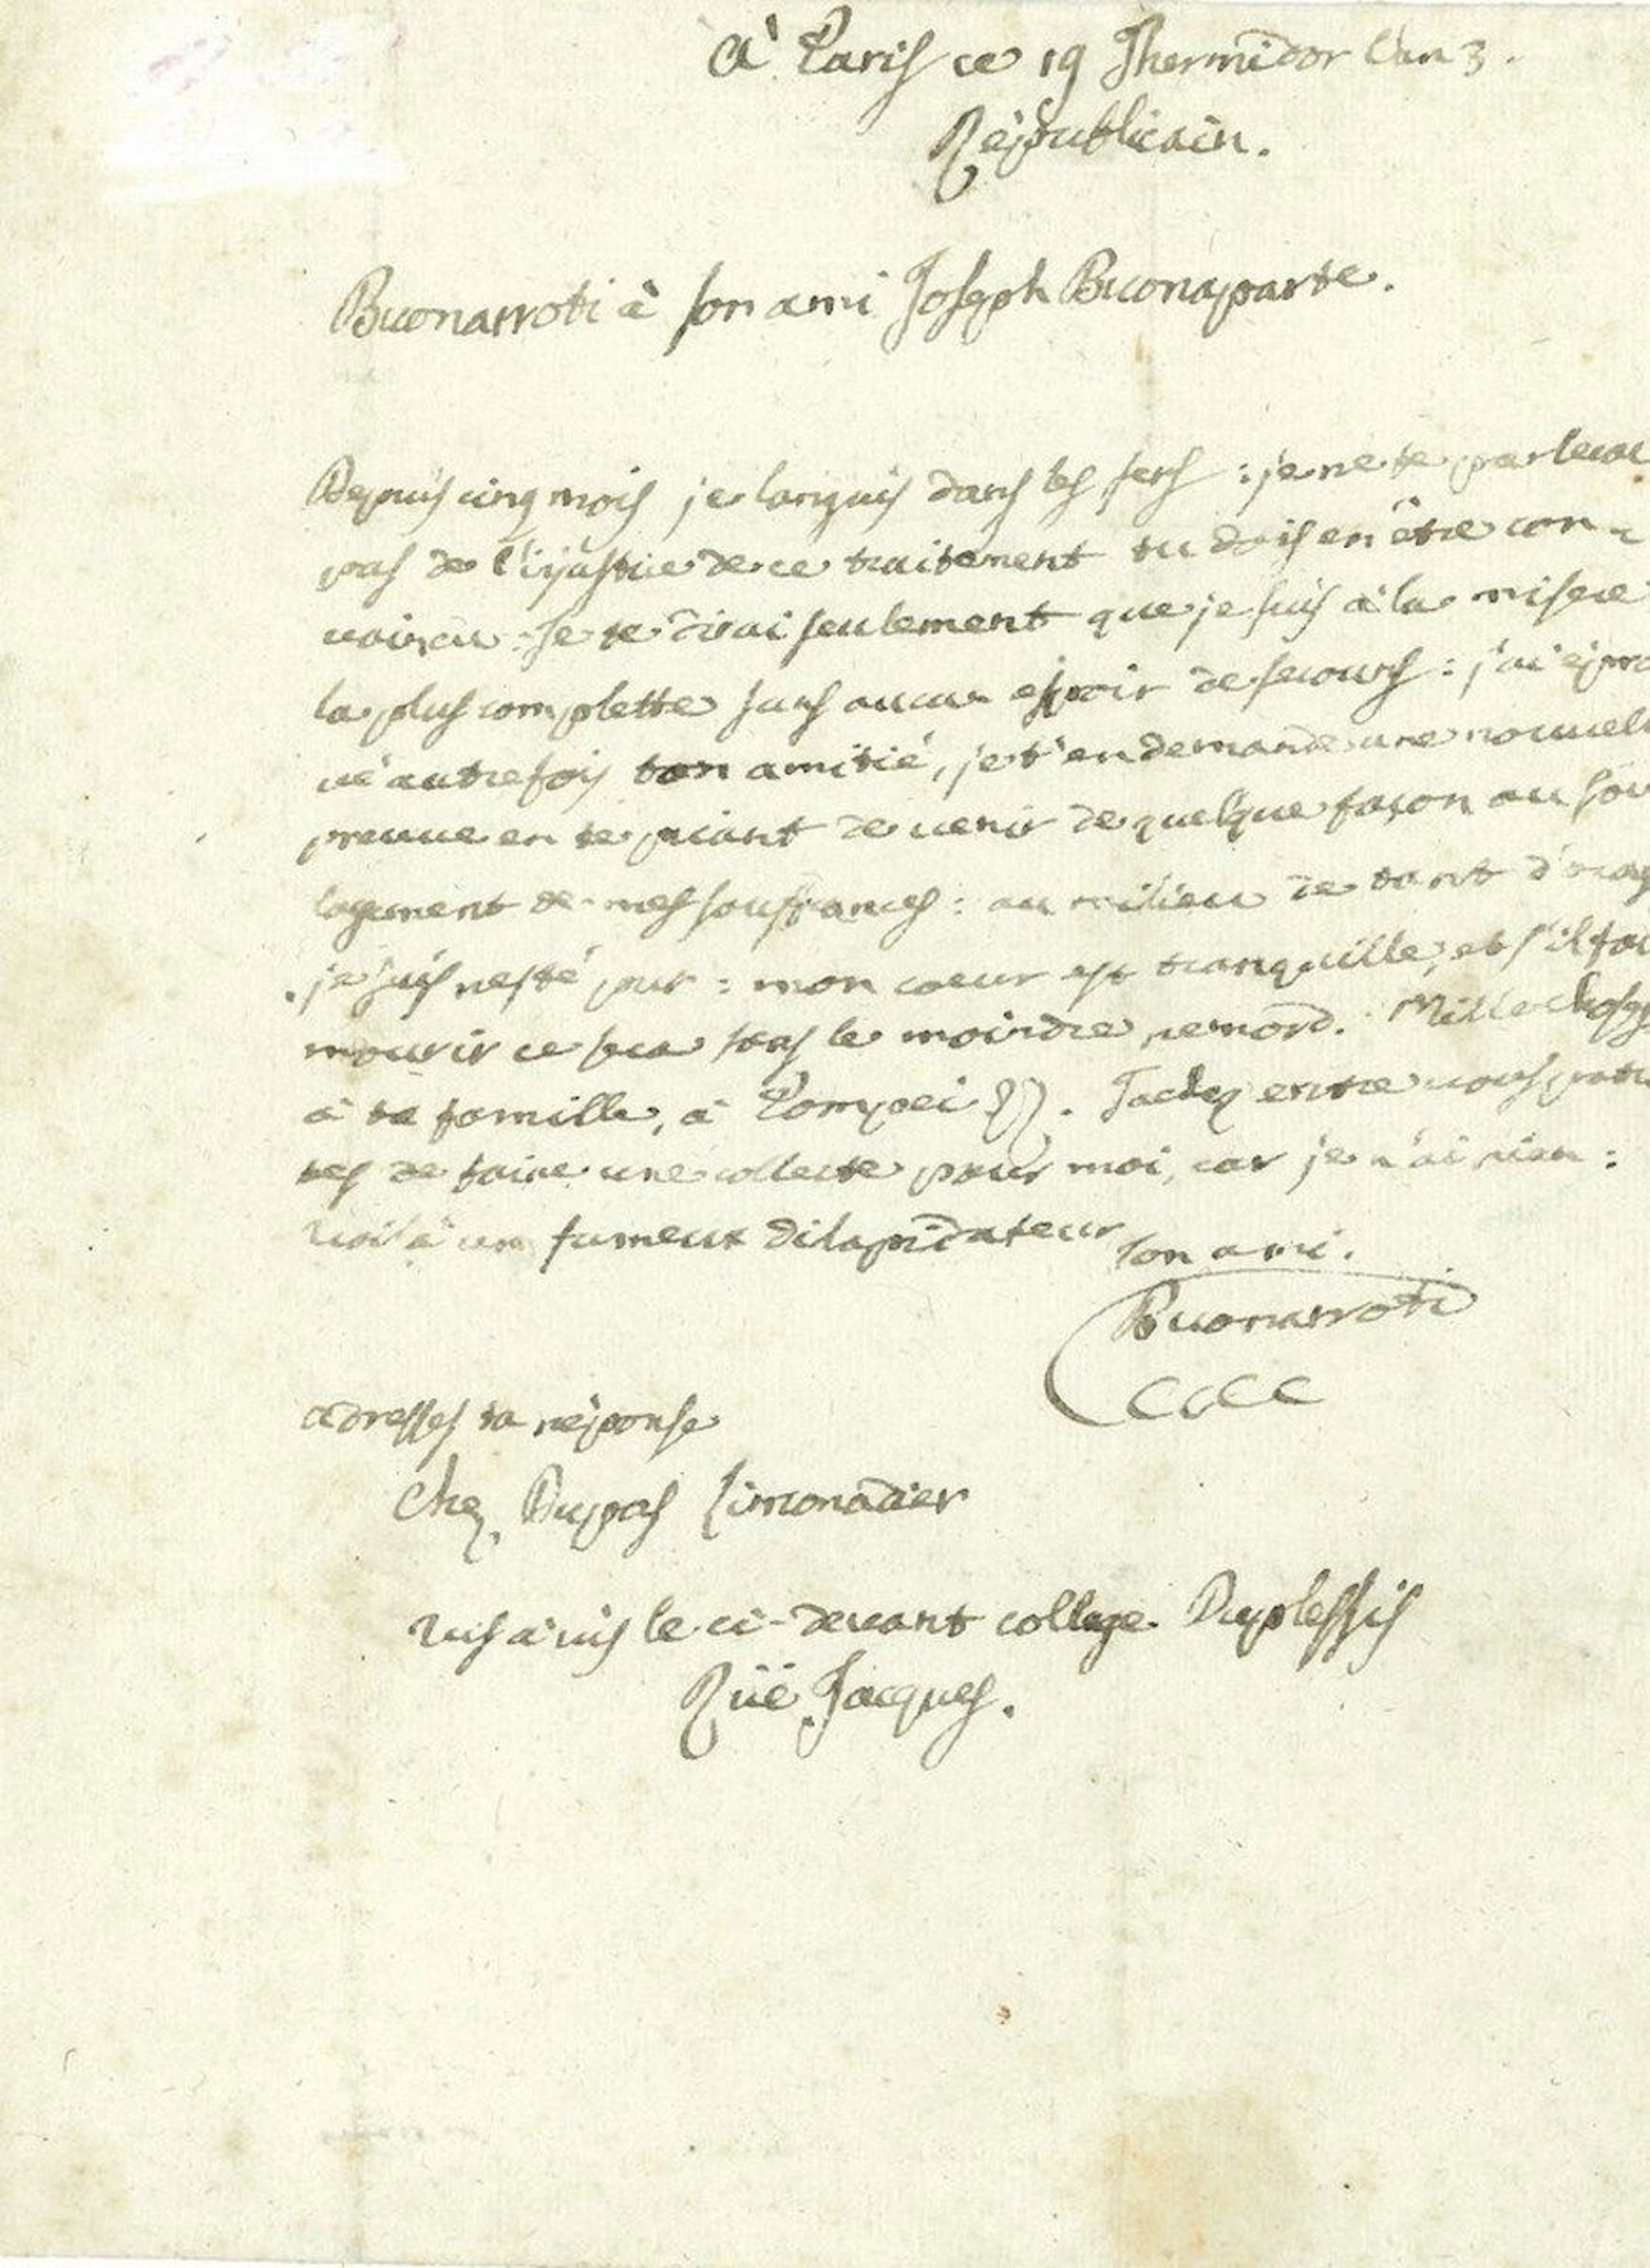 À Paris ce 19 Thermidor l'an 3.
Républicain.
Buonarroti à son ami Joseph Buonaparte.
Depuis cinq mois je languis dans les fers : je ne te parlerai
pas de l'injustice de ce traitement tu dois en être con-
vaincu. Je te dirai seulement que je suis à la misere
la plus complette sans aucun espoir de secours : j'ai éprou
vé autrefois ton amitié, je t'en demande une nouvell
preuve en te priant de venir de quelque façon au sou
lagement de mes souffrances : au milieu de tant d'orag
je suis resté pur : mon cœur est tranquille, et s'il fau
mourir ce sera sans le moindre remord. Mille choses
à ta famille, à Pompei
tes de faire une collecte pour moi, car je n'ai rien :
voilà un fameux dilapidateur
ton ami.
Buonarroti
adresses ta réponse
chez Dupas Limonadier
vis à vis le ci-devant college Duplessis
Rüe Jacques.